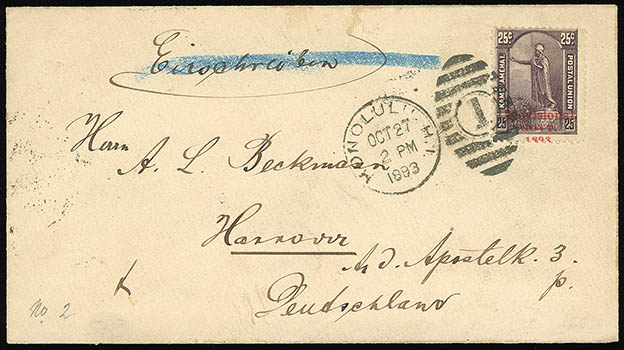 Einschreiben
25c. 25c.
KAMEHAMEHA I
POSTAL UNION
25 25
PROVISIONAL
GOVT.
1893
HONOLULU H.I.
OCT 27
2 PM
1893
1
Herrn
A. L. Beckmann
Hannover
A. d. Apostelk. 3.
p.
Deutschland
No. 2